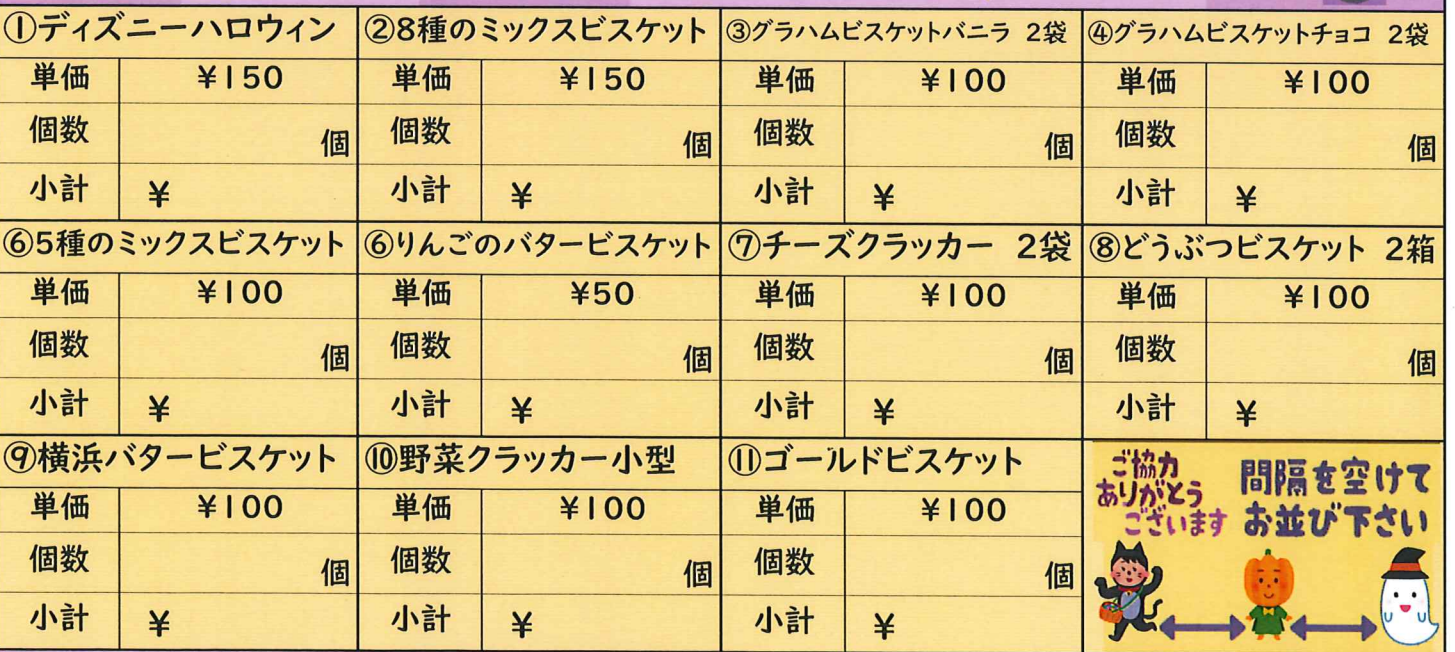 ①ディズニーハロウィン ②8種のミックスビスケット ③グラハムビスケットバニラ 2袋 ④グラハムビスケットチョコ 2袋
単価 ¥150 単価 ¥150 単価 ¥100 単価 ¥100
個数 個 個数 個 個数 個 個数 個
小計 ¥ 小計 ¥ 小計 ¥ 小計 ¥
⑥5種のミックスビスケット ⑥りんごのバタービスケット ⑦チーズクラッカー 2袋 ⑧どうぶつビスケット 2箱
単価 ¥100 単価 ¥50 単価 ¥100 単価 ¥100
個数 個 個数 個 個数 個 個数 個
小計 ¥ 小計 ¥ 小計 ¥ 小計 ¥
⑨横浜バタービスケット ⑩野菜クラッカー小型 ⑪ゴールドビスケット
単価 ¥100 単価 ¥100 単価 ¥100
個数 個 個数 個 個数 個
小計 ¥ 小計 ¥ 小計 ¥
ご協力
ありがとう
ございます
間隔を空けて
お並び下さい